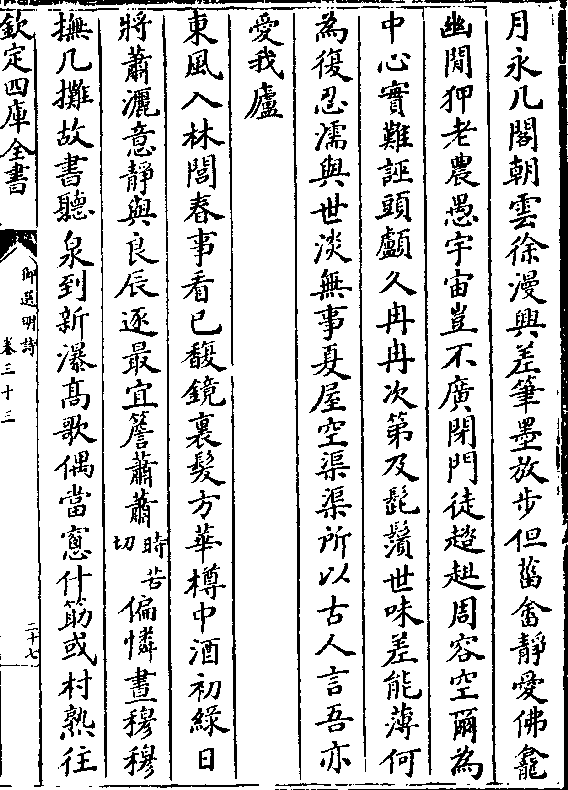 月永几閣朝雲徐漫興差筆墨放步但菑畬靜愛佛龕
幽閒狎老農愚宇宙豈不廣閉門徒趑趄周容空爾為
中心實難誣頭顱久冉冉次第及髭鬚世味差能薄何
為復忍濡與世淡無事夏屋空渠渠所以古人言吾亦
愛我廬
東風入林閭春事看已馥鏡裏髮方華樽中酒初綠日
將蕭灑意靜與良辰逐最宜簷蕭蕭時苦切偏憐晝穆穆
撫几攤故書聽泉到新瀑高歌偶當窻什筋或村熟往
欽定四庫全書
御選明詩
卷三十三
二十七